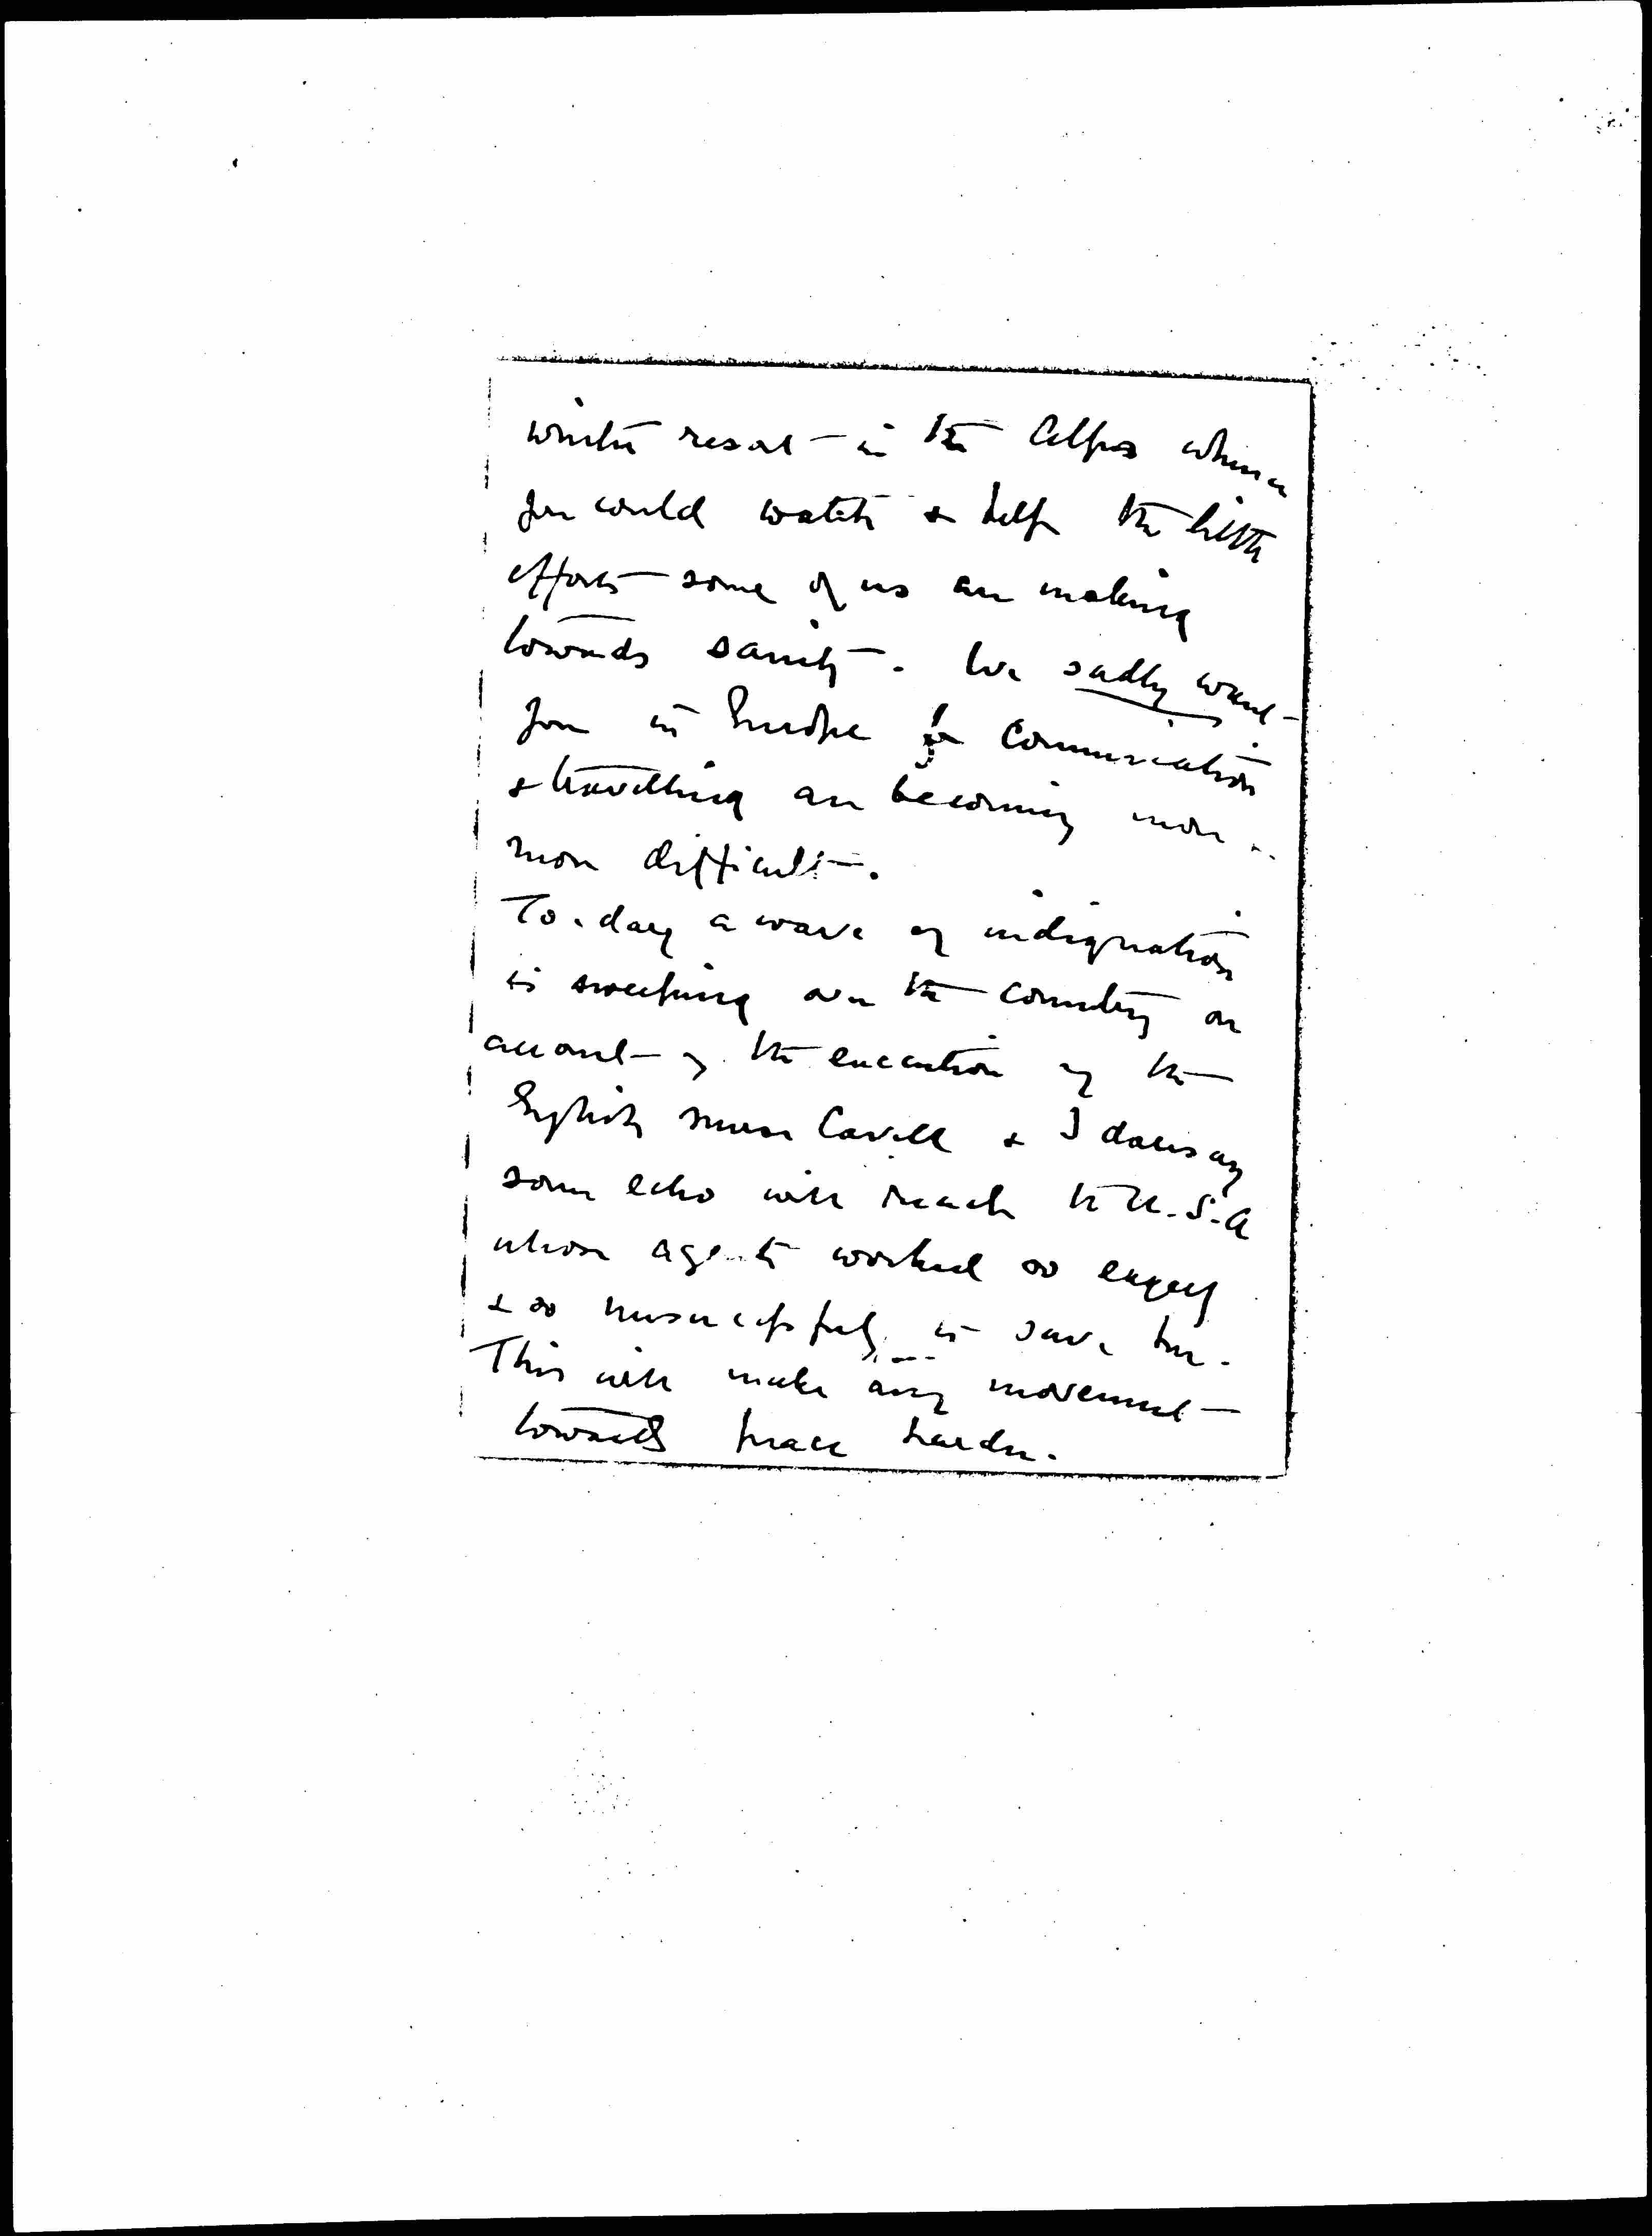 winter resort in the Alps whence
you could watch & help the little
efforts some of us are making
towards sanity. We sadly want
you in Europe for communication
& travelling are becoming more &
more difficult.
To-day a wave of indignation
is sweeping over the country on
account of the execution of the
English nurse Cavell & I daresay
some echo will reach the U.S.A
whose agents worked so eagerly
& so unsuccessfully to save her.
This will make any movement
towards peace harder.